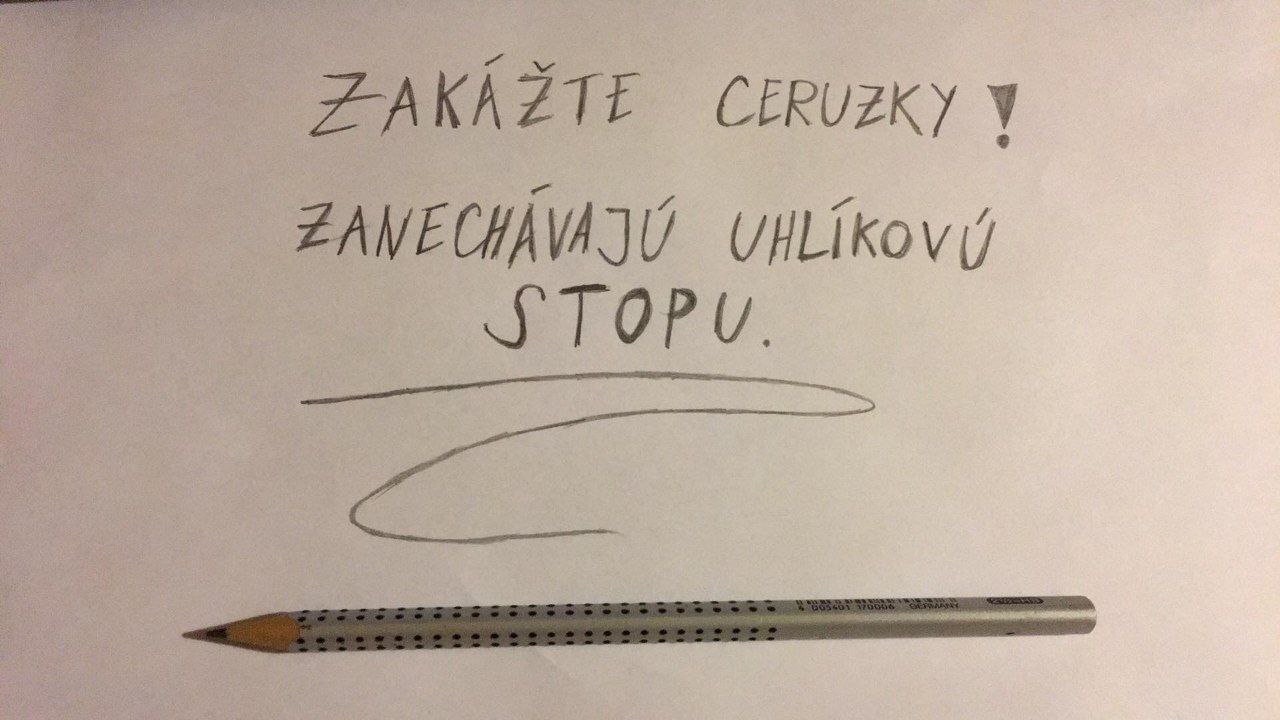 ZAKÁŽTE CERUZKY!
ZANECHÁVAJÚ UHLÍKOVÚ
STOPU.
005401 170006 GERMANY